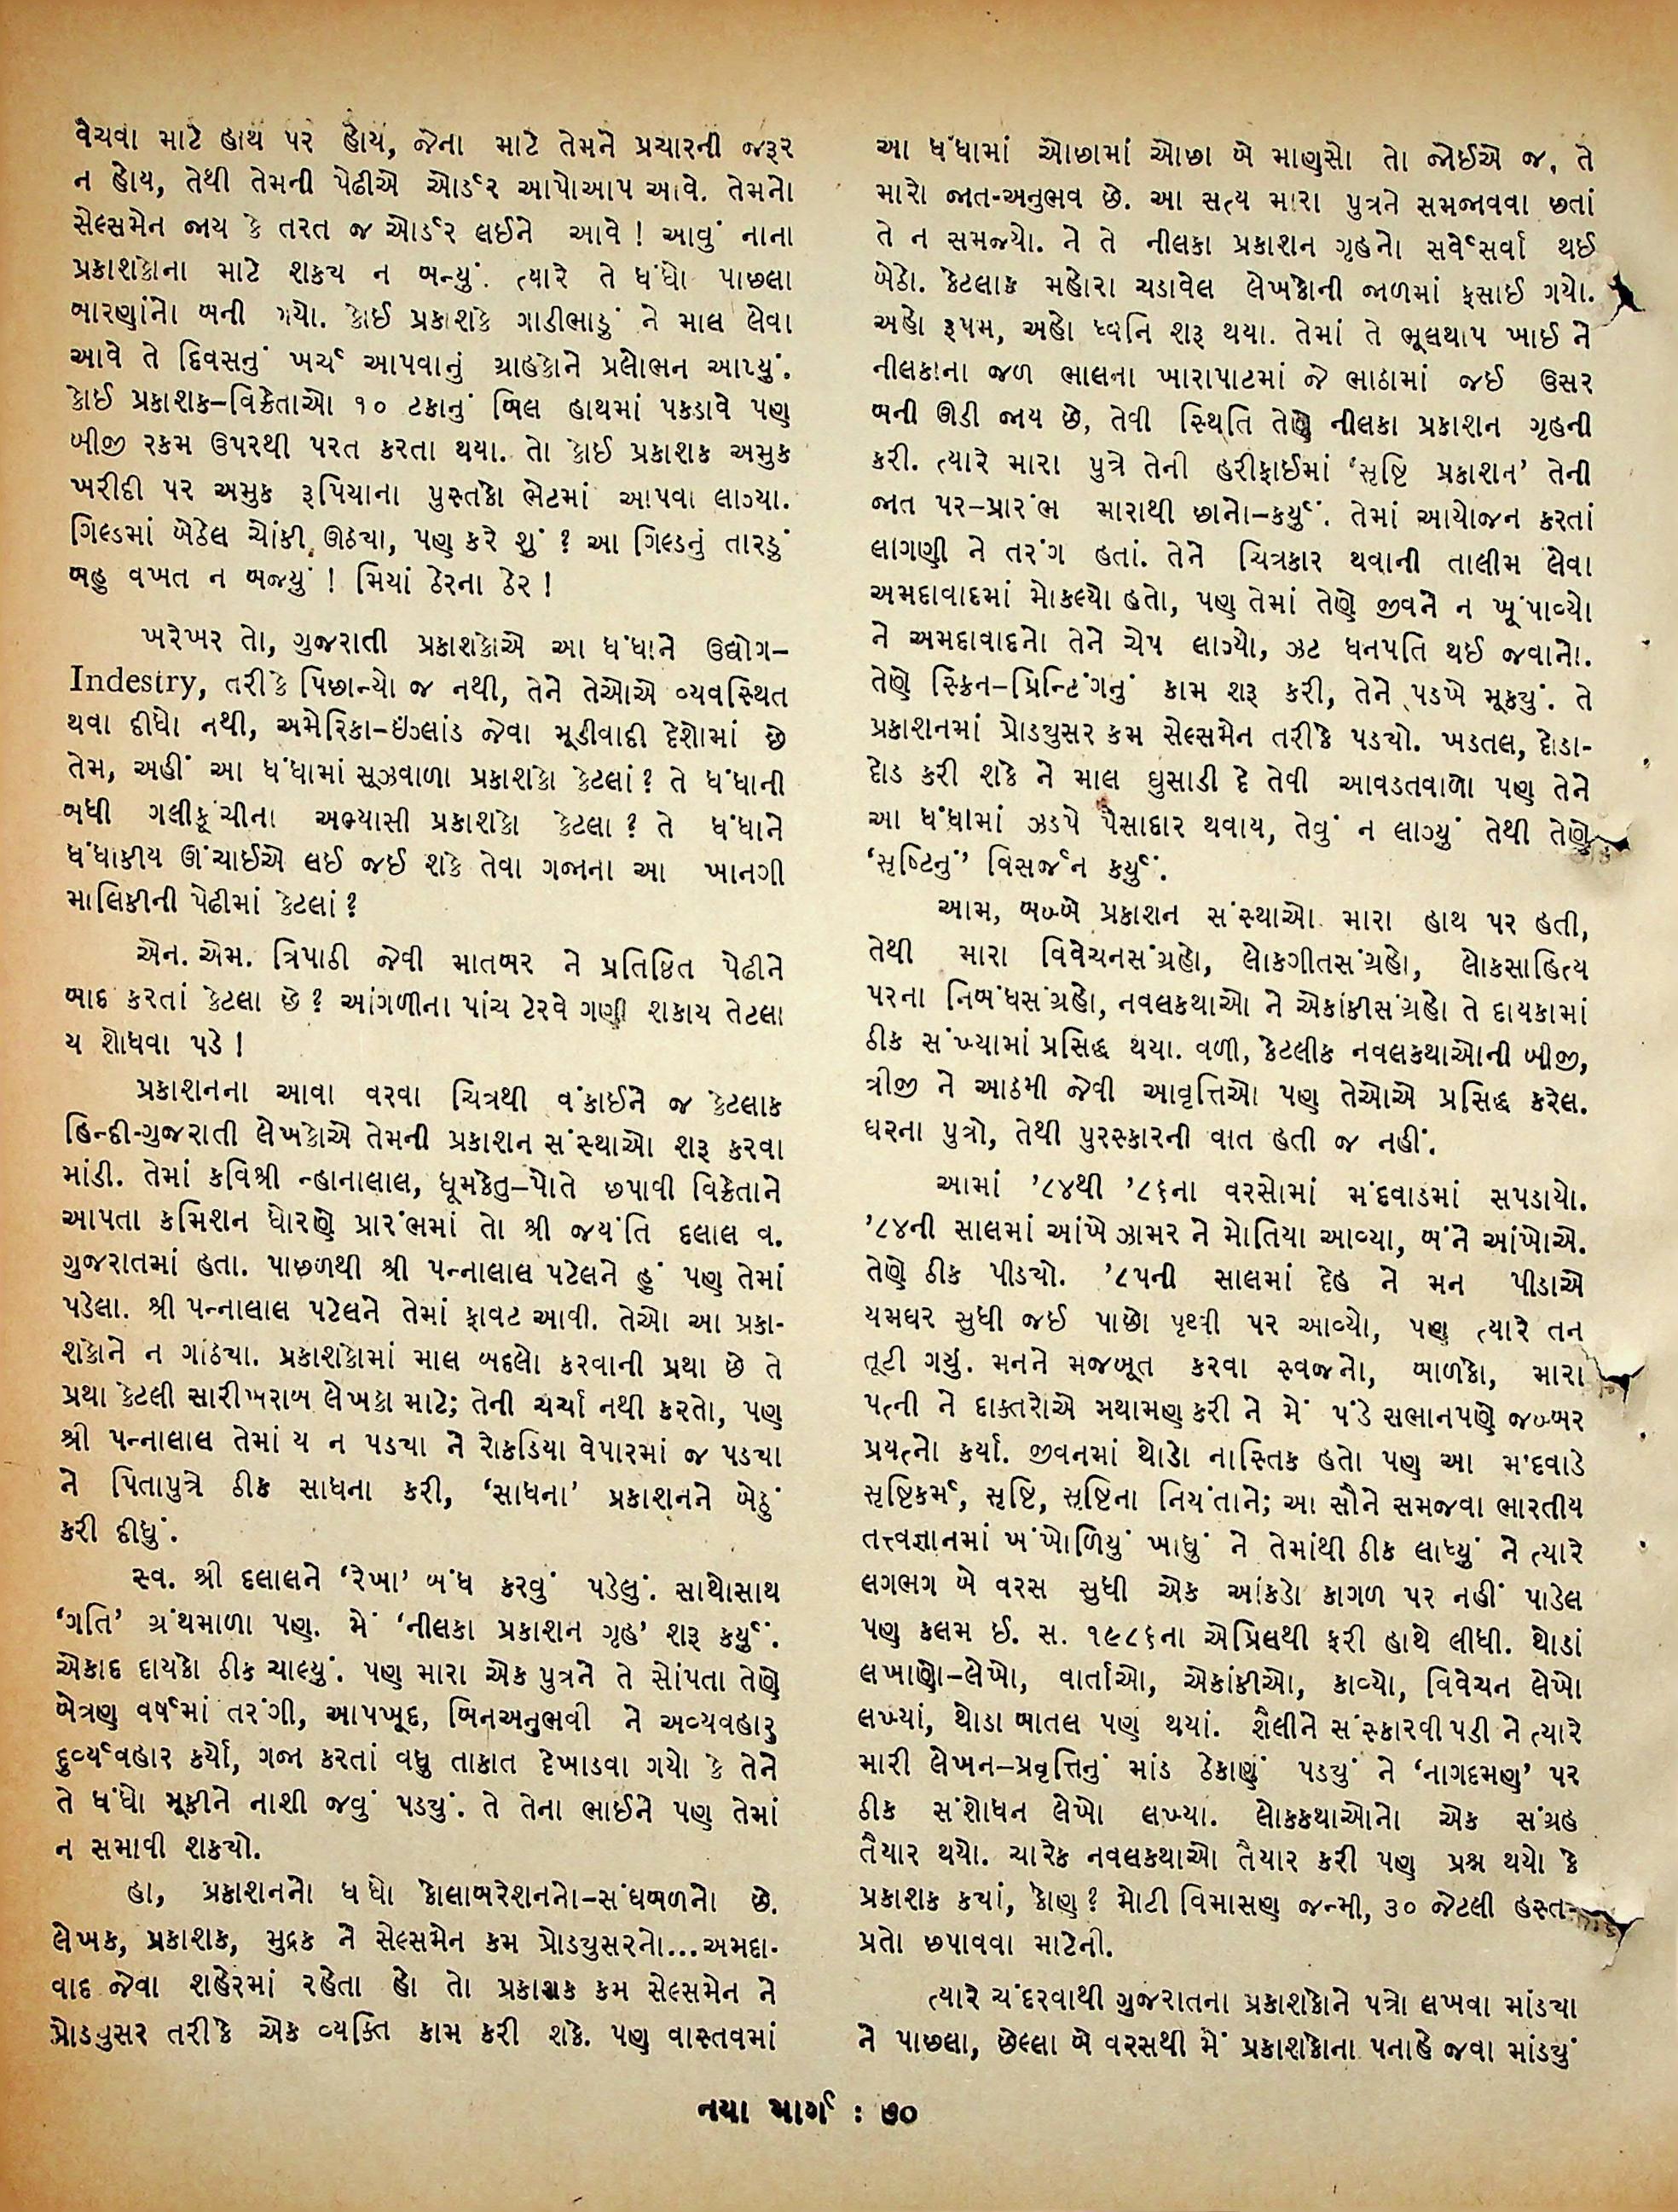 વેચવા માટે હાથ પર હોય, જેના માટે તેમને પ્રચારની જરૂર
ન હોય, તેથી તેમની પેઢીએ ઓર્ડર આપોઆપ આવે. તેમનો
સેલ્સમેન જાય કે તરત જ ઓર્ડર લઈને આવે ! આવું નાના
પ્રકાશકોના માટે શક્ય ન બન્યું. ત્યારે તે ધંધો પાછલા
બારણાંનો બની ગયો. કોઈ પ્રકાશકે ગાડીભાડું ને માલ લેવા
આવે તે દિવસનું ખર્ચ આપવાનું ગ્રાહકોને પ્રલોભન આપ્યું.
કોઈ પ્રકાશક–વિક્રેતાઓ ૧૦ ટકાનું બિલ હાથમાં પકડાવે પણ
બીજી રકમ ઉપરથી પરત કરતા થયા. તો કોઈ પ્રકાશક અમુક
ખરીદી પર અમુક રૂપિયાના પુસ્તકો ભેટમાં આપવા લાગ્યા.
ગિલ્ડમાં બેઠેલ ચોંકી ઊઠયા, પણ કરે શું ? આ ગિલ્ડનું તારડું
બહુ વખત ન બજ્યું ! મિયાં ઠેરના ઠેર !
ખરેખર તો, ગુજરાતી પ્રકાશકોએ આ ધંધાને ઉદ્યોગ–
Indestry, તરીકે પિછાન્યો જ નથી, તેને તેઓએ વ્યવસ્થિત
થવા દીધો નથી, અમેરિકા-ઇંગ્લાંડ જેવા મૂડીવાદી દેશોમાં છે
તેમ, અહીં આ ધંધામાં સૂઝવાળા પ્રકાશકો કેટલાં ? તે ધંધાની
બધી ગલીકૂંચીના અભ્યાસી પ્રકાશકો કેટલા ? તે ધંધાને
ધંધાકીય ઊંચાઈએ લઈ જઈ શકે તેવા ગજાના આ ખાનગી
માલિકીની પેઢીમાં કેટલાં ?
એન. એમ. ત્રિપાઠી જેવી માતબર ને પ્રતિષ્ઠિત પેઢીને
બાદ કરતાં કેટલા છે ? આંગળીના પાંચ ટેરવે ગણી શકાય તેટલા
ય શોધવા પડે !
પ્રકાશનના આવા વરવા ચિત્રથી વંકાઈને જ કેટલાક
હિન્દી-ગુજરાતી લેખકોએ તેમની પ્રકાશન સંસ્થાઓ શરૂ કરવા
માંડી. તેમાં કવિશ્રી ન્હાનાલાલ, ધૂમકેતુ–પોતે છપાવી વિક્રેતાને
આપતા કમિશન ધોરણે પ્રારંભમાં તો શ્રી જયંતિ દલાલ વ.
ગુજરાતમાં હતા. પાછળથી શ્રી પન્નાલાલ પટેલને હું પણ તેમાં
પડેલા. શ્રી પન્નાલાલ પટેલને તેમાં ફાવટ આવી. તેઓ આ પ્રકા-
શકોને ન ગાંઠયા. પ્રકાશકોમાં માલ બદલો કરવાની પ્રથા છે તે
પ્રથા કેટલી સારીખરાબ લેખકો માટે; તેની ચર્ચા નથી કરતો, પણ
શ્રી પન્નાલાલ તેમાં ય ન પડયા ને રોકડિયા વેપારમાં જ પડયા
ને પિતાપુત્રે ઠીક સાધના કરી, ‘સાધના’ પ્રકાશનને બેઠું
કરી દીધું.
સ્વ. શ્રી દલાલને ‘રેખા’ બંધ કરવું પડેલું. સાથોસાથ
‘ગતિ’ ગ્રંથમાળા પણ. મેં ‘નીલકા પ્રકાશન ગૃહ’ શરૂ કર્યું.
એકાદ દાયકો ઠીક ચાલ્યું. પણ મારા એક પુત્રને તે સોંપતા તેણે
બેત્રણ વર્ષમાં તરંગી, આપખૂદ, બિનઅનુભવી ને અવ્યવહારુ
દુર્વ્યવહાર કર્યો, ગજા કરતાં વધુ તાકાત દેખાડવા ગયો કે તેને
તે ધંધો મૂકીને નાશી જવું પડયું. તે તેના ભાઈને પણ તેમાં
ન સમાવી શકયો.
હા, પ્રકાશનનો ધંધો કોલાબરેશનનો-સંઘબળનો છે.
લેખક, પ્રકાશક, મુદ્રક ને સેલ્સમેન કમ પ્રોડયુસરનો...અમદા-
વાદ જેવા શહેરમાં રહેતા હો તો પ્રકાશક કમ સેલ્સમેન ને
પ્રોડયુસર તરીકે એક વ્યક્તિ કામ કરી શકે. પણ વાસ્તવમાં
આ ધંધામાં ઓછામાં ઓછા બે માણસો તો જોઈએ જ. તે
મારો જાત-અનુભવ છે. આ સત્ય મારા પુત્રને સમજાવવા છતાં
તે ન સમજ્યો. ને તે નીલકા પ્રકાશન ગૃહનો સર્વેસર્વા થઈ
બેઠો. કેટલાક મહોરા ચડાવેલ લેખકોની જાળમાં ફસાઈ ગયો.
અહો રૂપમ, અહો ધ્વનિ શરૂ થયા. તેમાં તે ભૂલથાપ ખાઈ ને
નીલકાના જળ ભાલના ખારાપાટમાં જે ભાઠામાં જઈ ઉસર
બની ઊડી જાય છે, તેવી સ્થિતિ તેણે નીલકા પ્રકાશન ગૃહની
કરી. ત્યારે મારા પુત્રે તેની હરીફાઈમાં ‘સૃષ્ટિ પ્રકાશન’ તેની
જાત પર–પ્રારંભ મારાથી છાનો–કર્યું. તેમાં આયોજન કરતાં
લાગણી ને તરંગ હતાં. તેને ચિત્રકાર થવાની તાલીમ લેવા
અમદાવાદમાં મોકલ્યો હતો, પણ તેમાં તેણે જીવને ન ખૂંપાવ્યો
ને અમદાવાદનો તેને ચેપ લાગ્યો, ઝટ ધનપતિ થઈ જવાનો.
તેણે સ્ક્રિન–પ્રિન્ટિંગનું કામ શરૂ કરી, તેને પડખે મૂક્યું. તે
પ્રકાશનમાં પ્રોડયુસર કમ સેલ્સમેન તરીકે પડયો. ખડતલ, દોડા-
દોડ કરી શકે ને માલ ઘુસાડી દે તેવી આવડતવાળો પણ તેને
આ ધંધામાં ઝડપે પૈસાદાર થવાય, તેવું ન લાગ્યું તેથી તેણે
‘સૃષ્ટિનું’ વિસર્જન કર્યું.
આમ, બબ્બે પ્રકાશન સંસ્થાઓ મારા હાથ પર હતી,
તેથી મારા વિવેચનસંગ્રહો, લોકગીતસંગ્રહો, લોકસાહિત્ય
પરના નિબંધસંગ્રહો, નવલકથાઓ ને એકાંકીસંગ્રહો તે દાયકામાં
ઠીક સંખ્યામાં પ્રસિદ્ધ થયા. વળી, કેટલીક નવલકથાઓની બીજી,
ત્રીજી ને આઠમી જેવી આવૃત્તિઓ પણ તેઓએ પ્રસિદ્ધ કરેલ.
ઘરના પુત્રો, તેથી પુરસ્કારની વાત હતી જ નહીં.
આમાં ’૮૪થી ’૮૬ના વરસોમાં મંદવાડમાં સપડાયો.
’૮૪ની સાલમાં આંખે ઝામર ને મોતિયા આવ્યા, બંને આંખોએ.
તેણે ઠીક પીડયો. ’૮૫ની સાલમાં દેહ ને મન પીડાએ
યમઘર સુધી જઈ પાછો પૃથ્વી પર આવ્યો, પણ ત્યારે તન
તૂટી ગયું. મનને મજબૂત કરવા સ્વજનો, બાળકો, મારા
પત્ની ને દાક્તરોએ મથામણ કરી ને મેં પંડે સભાનપણે જબ્બર
પ્રયત્નો કર્યા. જીવનમાં થોડો નાસ્તિક હતો પણ આ મંદવાડે
સૃષ્ટિકર્મ, સૃષ્ટિ, સૃષ્ટિના નિયંતાને; આ સૌને સમજવા ભારતીય
તત્ત્વજ્ઞાનમાં ખંખોળિયું ખાધું ને તેમાંથી ઠીક લાધ્યું ને ત્યારે
લગભગ બે વરસ સુધી એક આંકડો કાગળ પર નહીં પાડેલ
પણ કલમ ઈ. સ. ૧૯૮૬ના એપ્રિલથી ફરી હાથે લીધી. થોડાં
લખાણો–લેખો, વાર્તાઓ, એકાંકીઓ, કાવ્યો, વિવેચન લેખો
લખ્યાં, થોડા બાતલ પણ થયાં. શૈલીને સંસ્કારવી પડી ને ત્યારે
મારી લેખન–પ્રવૃત્તિનું માંડ ઠેકાણું પડયું ને ‘નાગદમણ’ પર
ઠીક સંશોધન લેખો લખ્યા. લોકકથાઓનો એક સંગ્રહ
તૈયાર થયો. ચારેક નવલકથાઓ તૈયાર કરી પણ પ્રશ્ન થયો કે
પ્રકાશક કયાં, કોણ ? મોટી વિમાસણ જન્મી, ૩૦ જેટલી હસ્ત-
પ્રતો છપાવવા માટેની.
ત્યારે ચંદરવાથી ગુજરાતના પ્રકાશકોને પત્રો લખવા માંડયા
ને પાછલા, છેલ્લા બે વરસથી મેં પ્રકાશકોના પનાહે જવા માંડયું
નયા માર્ગ : ૭૦